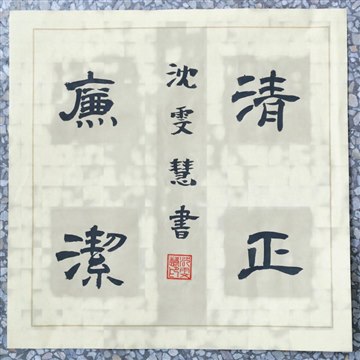 清正
廉潔
沈雯慧書